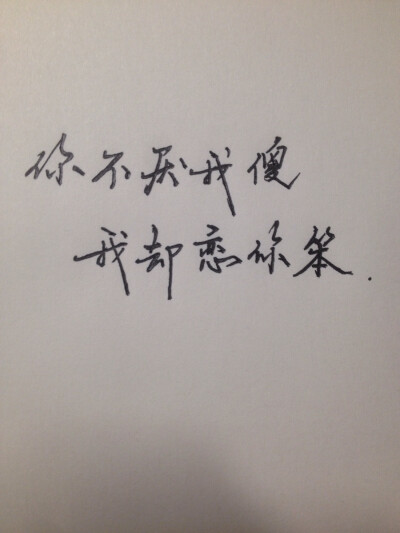 你不厌我傻
我却恋你笨.